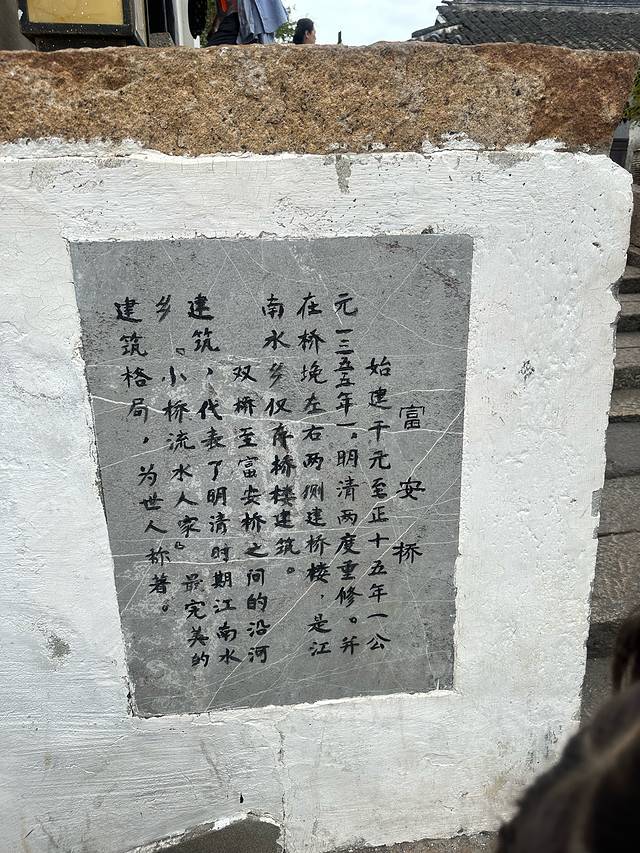 富安桥
始建于元至正十五年︵公
元一三五五年︶。明清两度重修。并
在桥堍左右两侧建桥楼，是江
南水乡仅存桥楼建筑。
双桥至富安桥之间的沿河
建筑，代表了明清时期江南水
乡『小桥流水人家』最完美的
建筑格局，为世人称著。